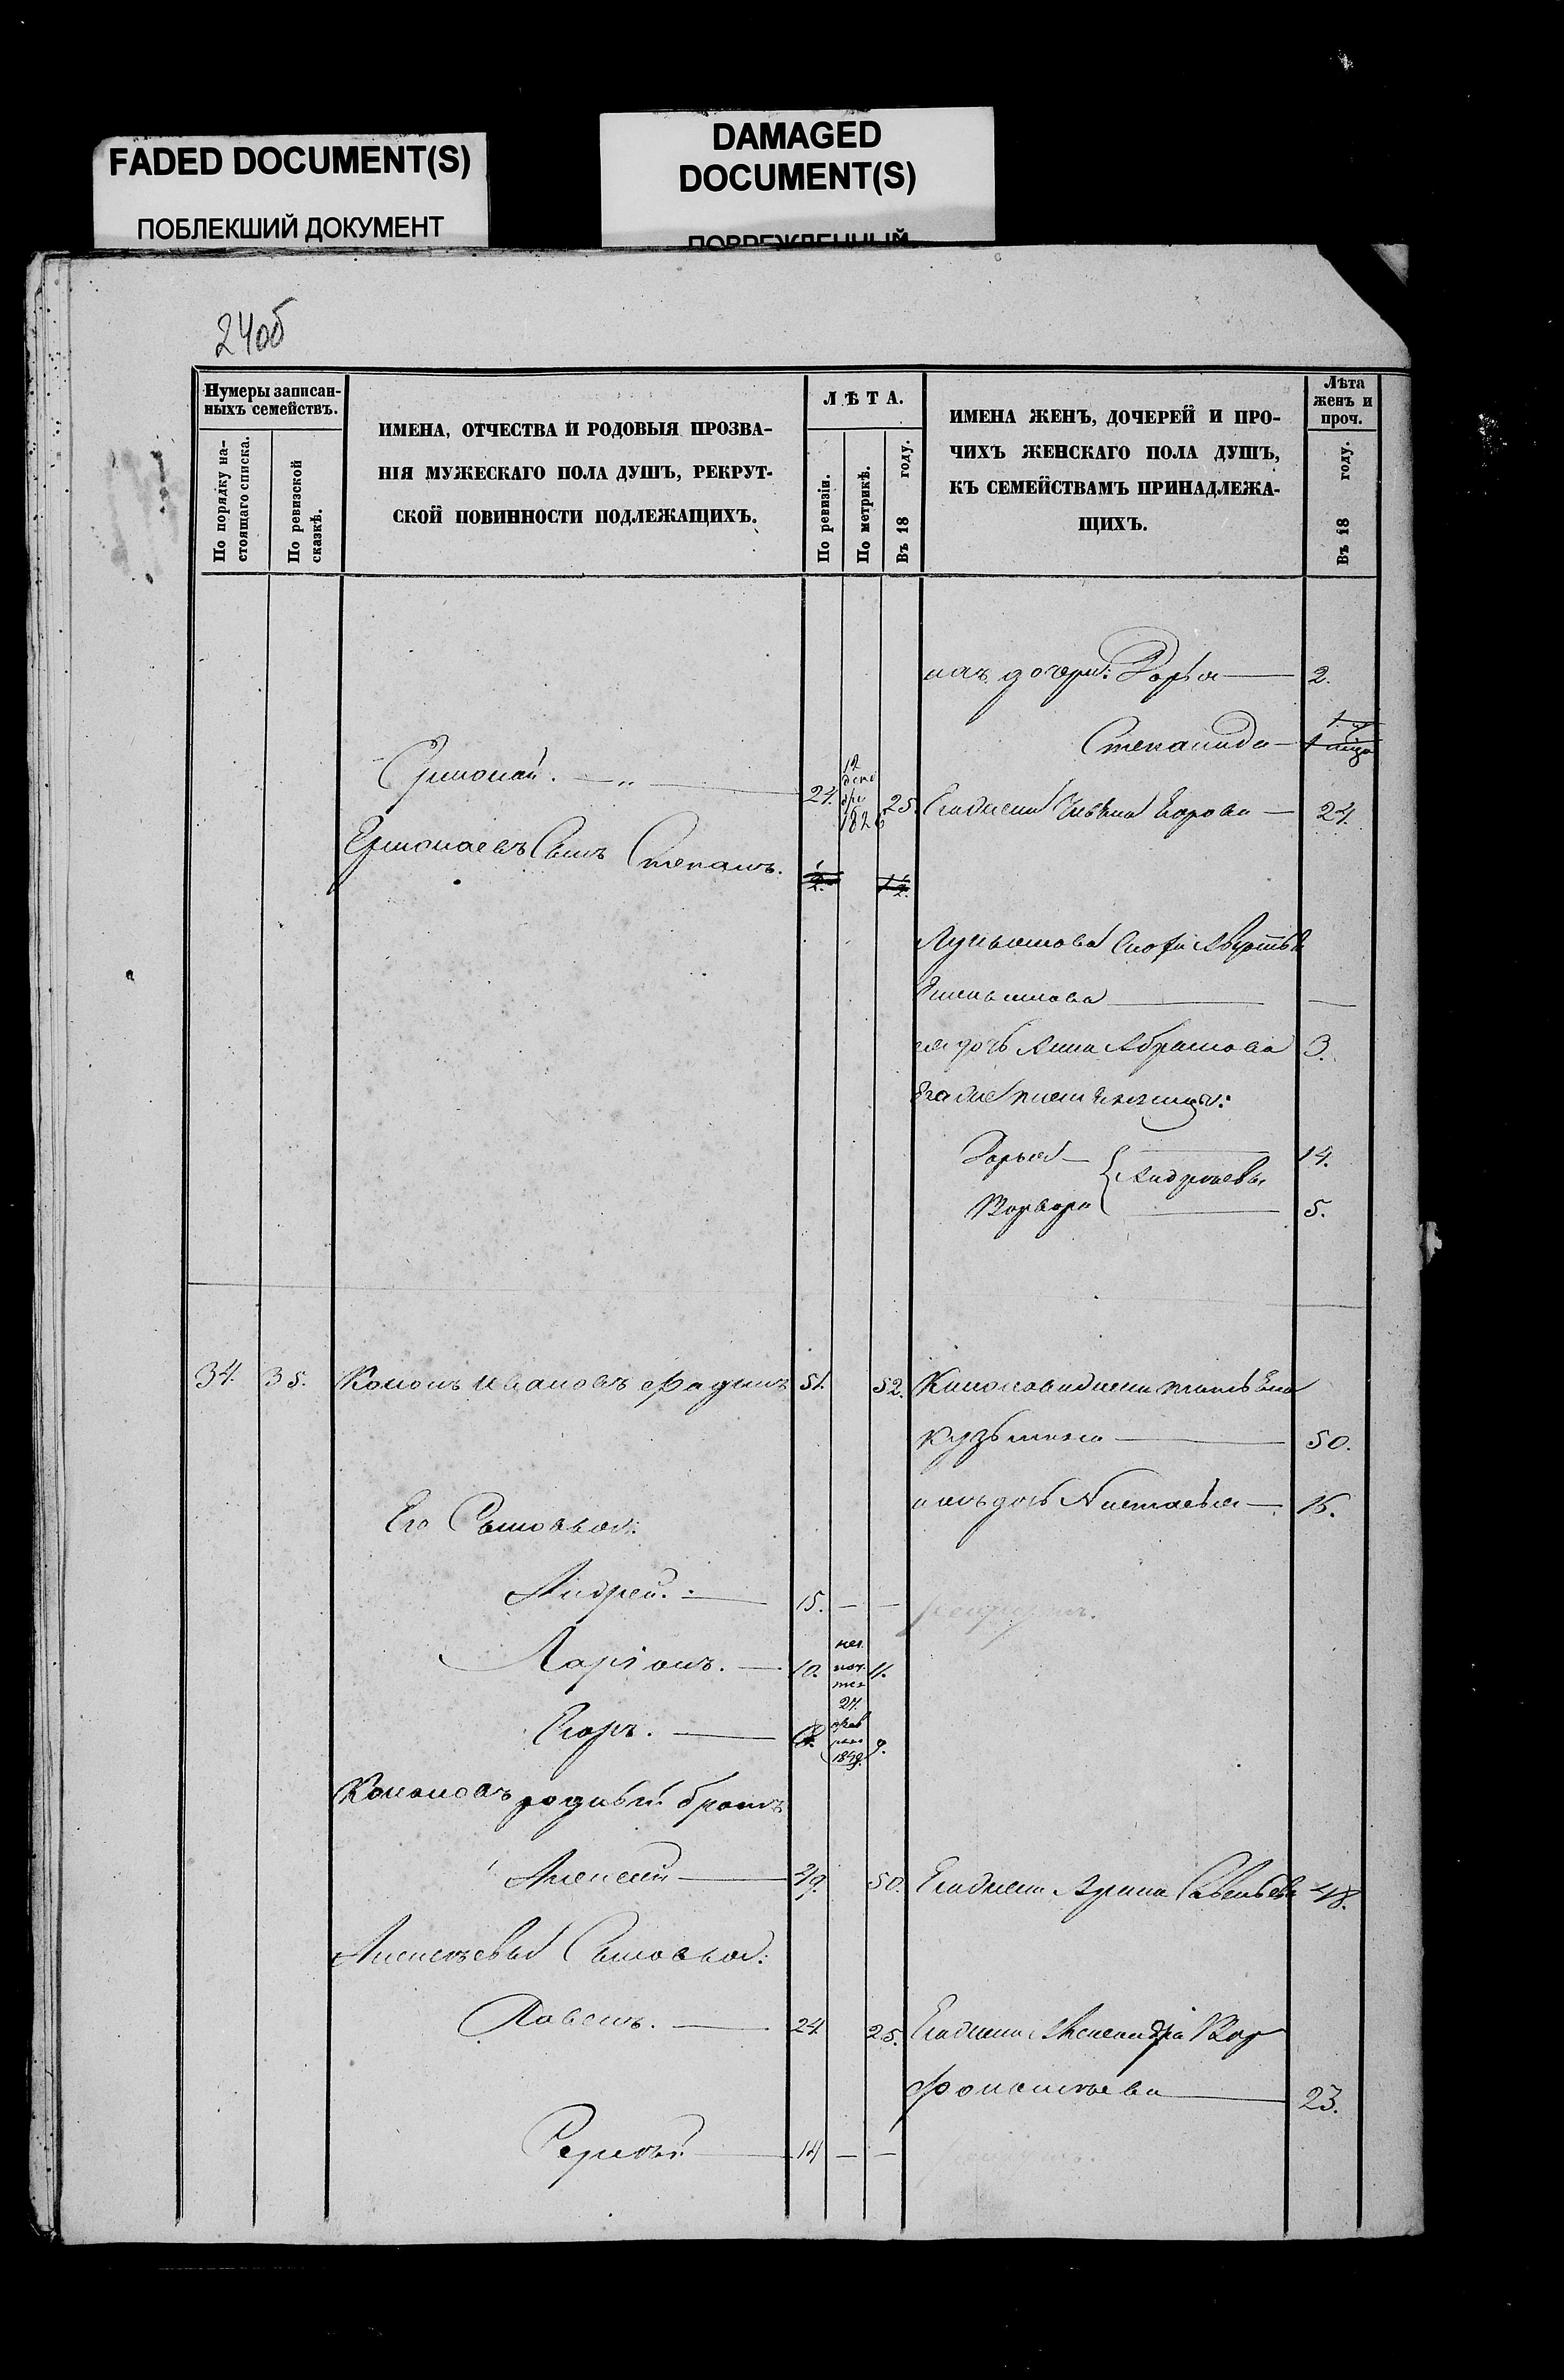 FADED DOCUMENT(S)
ПОБЛЕКШИЙ ДОКУМЕНТ
DAMAGED
DOCUMENT(S)
ПОВРЕЖДЕННЫЙ
24об
Нумеры записан-
ныхъ семействъ.
По порядку на-
стоящаго списка.
По ревизской
сказкѣ.
ИМЕНА, ОТЧЕСТВА И РОДОВЫЯ ПРОЗВА-
НІЯ МУЖЕСКАГО ПОЛА ДУШЪ, РЕКРУТ-
СКОЙ ПОВИННОСТИ ПОДЛЕЖАЩИХЪ.
ЛѢТА.
По ревизіи.
По метрикѣ.
Въ 18 году.
ИМЕНА ЖЕНЪ, ДОЧЕРЕЙ И ПРО-
ЧИХЪ ЖЕНСКАГО ПОЛА ДУШЪ,
КЪ СЕМЕЙСТВАМЪ ПРИНАДЛЕЖА-
ЩИХЪ.
Лѣта
женъ и
проч.
Въ 18 году.
ихъ дочери: Дарья — 2.
Степанида —
Ермолай. — 24. 12 1826 25. Его жена Егорова — 24.
Ермолаевъ Сынъ Степанъ.
Емельянова —
ея дочь Анна Абрамова 3.
Его же племянницы:
Дарья — 14.
Андреевы
Варвара 5.
34. 35. Кононъ Ивановъ 51. 52. Кононова жена
Кузьмина — 50.
ихъ дочь Настасья — 15.
Его Сыновья:
Андрей. — 15. — —
Ларіонъ. — 10. 11.
Егоръ. — 24. 9.
Кононовъ родный братъ
Алексей — 49. 50. Его жена Арина Савельева 48.
Алексеевы Сыновья:
Павелъ. — 24. 25. Его жена Александра Вар
фоломеева — 23.
Сергей — 14 — —